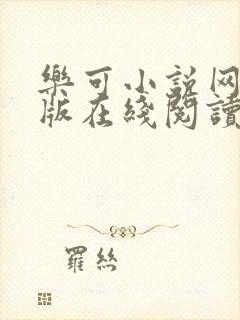 樂可小說网
版在綫閱讀
羅絲